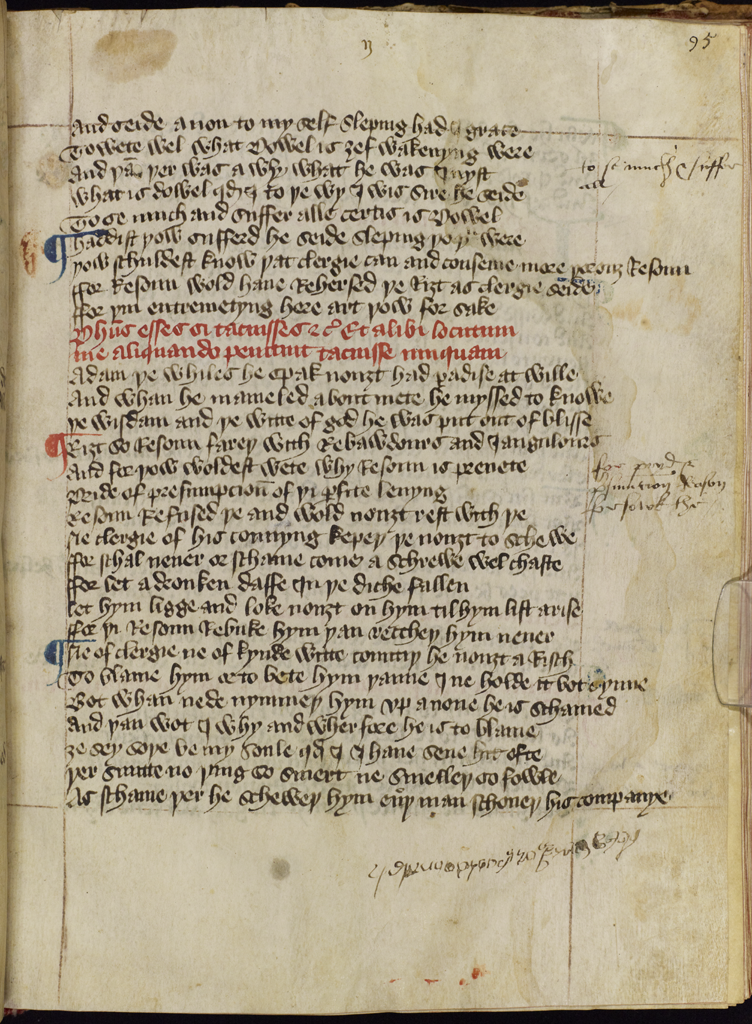 95
And seide anon to my self sleping had I grace
To wete wel what Dowel is ȝef wakenyng were
And þan þer was a why what he was I wyst
What is dowel qd I to þe wy I wis sire he seide
To se much and suffer alle certis is Dowel
to se much & suffre all
Haddist þow sufferd he seide sleping þo þu were
Þow schuldest know þat clergie can and conseiue more þoruȝ Resoun
ffor Resoun wold haue Rehersed þe Riȝt as clergie seide
ffor þin entremetyng here art þow for sake
Phus esses si tacuisses &c Et alibi locutum
me aliquando penituit tacuisse nunquam
Adam þe whiles he spak nouȝt had padise at wille
And whan he mameled about mete he myssed to knowe
Þe wisdam and þe witte of god he was put out of blisse
Riȝt so Resoun fareþ with Rebawdours and Iangulours
And for þow woldest wete why Resoun is preuete
Pride of presumpcioun of þi pfite leuyng
for pryd &
Resoun Refused þe and wold nouȝt rest with þe
Reson
Ne clergie of his connyng kepeþ þe nouȝt to schewe
ffor schal neuer or schame come a schrewe wel chaste
ffor let a dronken daffe In þe diche fallen
Let hym ligge and loke nouȝt on hym til hym list arise
ffor þi Resoun Rebuke hym þan reccheþ hym neuer
Ne of clergie ne of kynde witte countiþ he nouȝt a Risch
To blame hym or to bete hym þanne I ne holde it bot synne
Bot whan nede nymmeþ hym vp anone he is schamed
And þan wot I why and wherfore he is to blame
Ȝe sey soþe be my soule qd I I haue sene hit ofte
Þer smitte no þing so smert ne smelleþ so fowle
As schame þer he scheweþ hym eu'y man schoneþ his companye